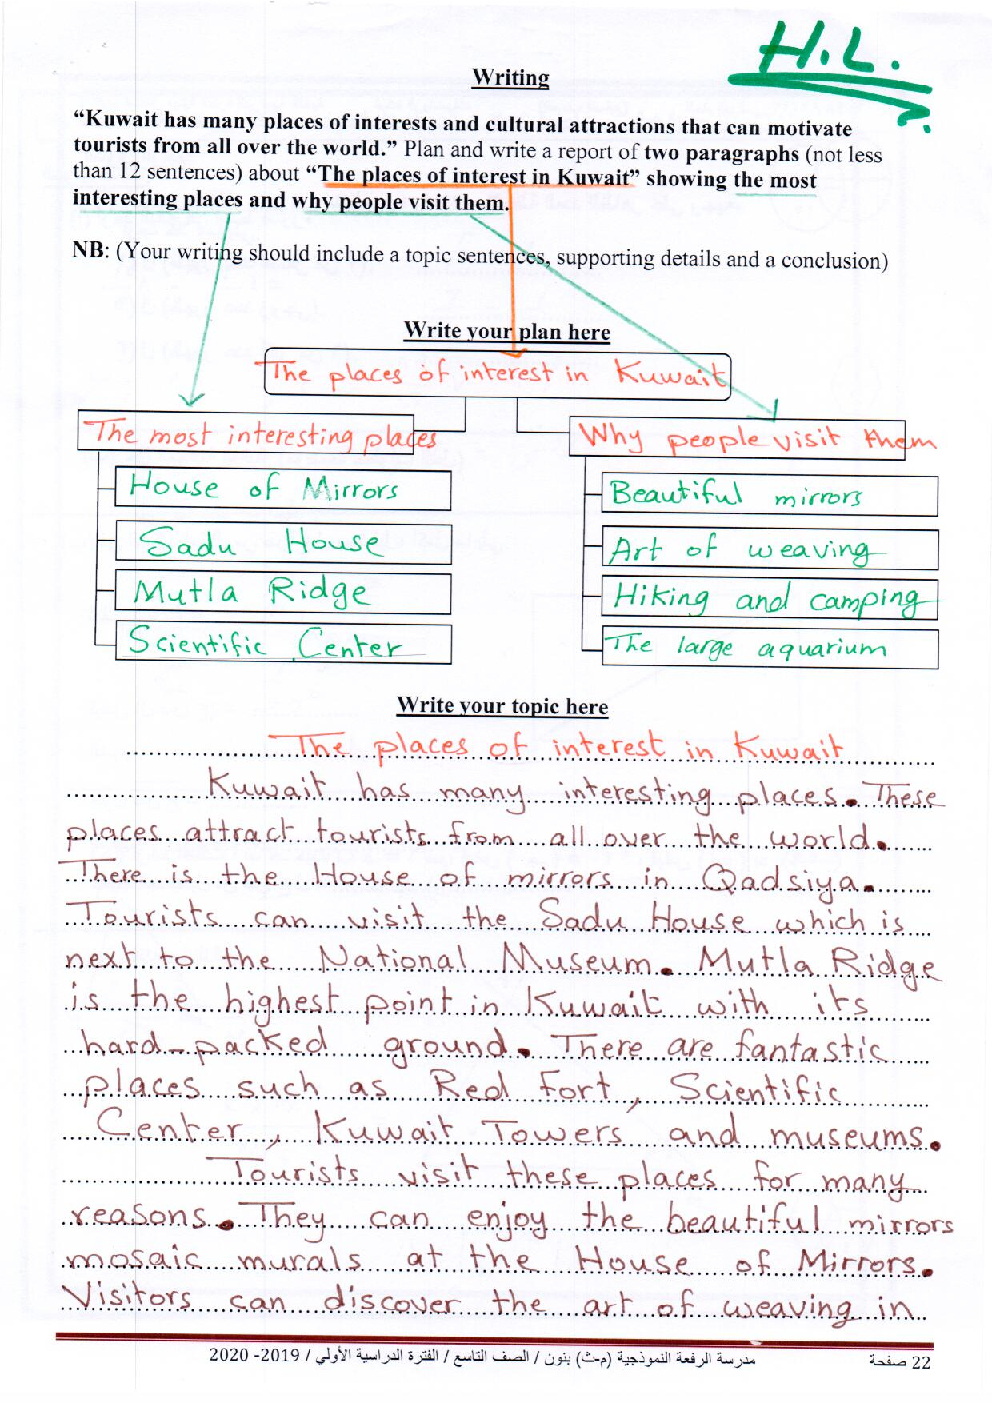 H.L.
Writing
“Kuwait has many places of interests and cultural attractions that can motivate
tourists from all over the world.” Plan and write a report of two paragraphs (not less
than 12 sentences) about “The places of interest in Kuwait” showing the most
interesting places and why people visit them.
NB: (Your writing should include a topic sentences, supporting details and a conclusion)
Write your plan here
The places of interest in Kuwait
The most interesting places
Why people visit them
House of Mirrors
Beautiful mirrors
Sadu House
Art of weaving
Mutla Ridge
Hiking and camping
Scientific Center
The large aquarium
Write your topic here
The places of interest in Kuwait
Kuwait has many interesting places. These
places attract tourists from all over the world.
There is the House of mirrors in Qadsiya.
Tourists can visit the Sadu House which is
next to the National Museum. Mutla Ridge
is the highest point in Kuwait with its
hard-packed ground. There are fantastic
places such as Red Fort, Scientific
Center, Kuwait Towers and museums.
Tourists visit these places for many
reasons. They can enjoy the beautiful mirrors
mosaic murals at the House of Mirrors.
Visitors can discover the art of weaving in
مدرسة الرفعة النموذجية (م-ث) بنون / الصف التاسع / الفترة الدراسية الأولي / 2019- 2020
22 صفحة